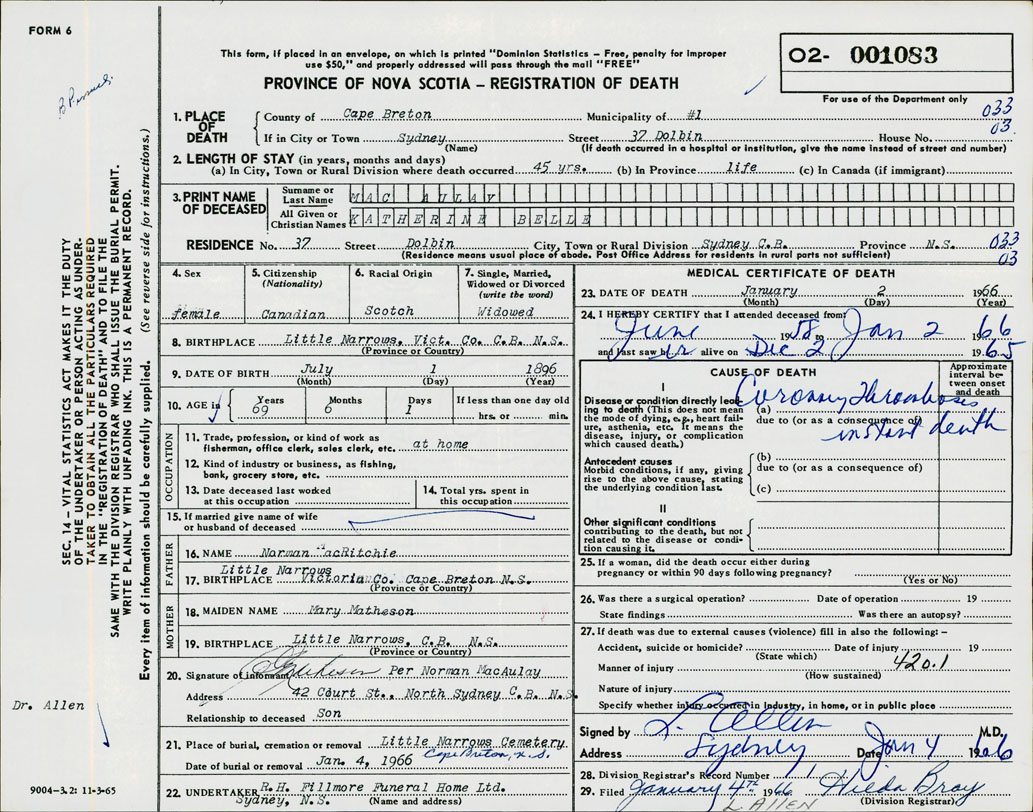 FORM 6
This form, if placed in an envelope, on which is printed "Dominion Statistics – Free, penalty for improper
use $50," and properly addressed will pass through the mail "FREE"
PROVINCE OF NOVA SCOTIA – REGISTRATION OF DEATH
02- 001083
For use of the Department only
1. PLACE OF DEATH
County of Cape Breton Municipality of #1 033
If in City or Town Sydney Street 37 Dolbin House No. 03
(Name) (If death occurred in a hospital or institution, give the name instead of street and number)
2. LENGTH OF STAY (in years, months and days)
(a) In City, Town or Rural Division where death occurred 45 yrs. (b) In Province life (c) In Canada (if immigrant)
3. PRINT NAME OF DECEASED
Surname or Last Name MAC AULAY
All Given or Christian Names KATHERINE BELLE
RESIDENCE No. 37 Street Dolbin City, Town or Rural Division Sydney C.B. Province N.S. 033
(Residence means usual place of abode. Post Office Address for residents in rural parts not sufficient) 03
4. Sex
female
5. Citizenship
(Nationality)
Canadian
6. Racial Origin
Scotch
7. Single, Married,
Widowed or Divorced
(write the word)
Widowed
8. BIRTHPLACE Little Narrows, Vict. Co. C.B. N.S.
(Province or Country)
9. DATE OF BIRTH July 1 1896
(Month) (Day) (Year)
10. AGE in
Years Months Days If less than one day old
69 6 1 hrs. or min.
OCCUPATION
11. Trade, profession, or kind of work as
fisherman, office clerk, sales clerk, etc. at home
12. Kind of industry or business, as fishing,
bank, grocery store, etc.
13. Date deceased last worked
at this occupation
14. Total yrs. spent in
this occupation
15. If married give name of wife
or husband of deceased
FATHER
16. NAME Norman MacRitchie
Little Narrows
17. BIRTHPLACE Victoria Co. Cape Breton N.S.
(Province or Country)
MOTHER
18. MAIDEN NAME Mary Matheson
19. BIRTHPLACE Little Narrows, C.B. N.S.
(Province or Country)
20. Signature of informant Per Norman MacAulay
Address 42 Court St., North Sydney C.B. N.S.
Relationship to deceased Son
21. Place of burial, cremation or removal Little Narrows Cemetery
Cape Breton, N.S.
Date of burial or removal Jan. 4, 1966
22. UNDERTAKER R.H. Fillmore Funeral Home Ltd.
Sydney, N.S. (Name and address)
MEDICAL CERTIFICATE OF DEATH
23. DATE OF DEATH January 2 1966
(Month) (Day) (Year)
24. I HEREBY CERTIFY that I attended deceased from
June 1958 to Jan 2 1966
and last saw her alive on Dec 2 1965
CAUSE OF DEATH
Approximate
interval be-
tween onset
and death
I
Disease or condition directly lead-
ing to death (This does not mean
the mode of dying, e.g., heart fail-
ure, asthenia, etc. It means the
disease, injury, or complication
which caused death.)
(a) Coronary Thrombosis
due to (or as a consequence of)
instant death
Antecedent causes
Morbid conditions, if any, giving
rise to the above cause, stating
the underlying condition last.
(b)
due to (or as a consequence of)
(c)
II
Other significant conditions
contributing to the death, but not
related to the disease or condi-
tion causing it.
25. If a woman, did the death occur either during
pregnancy or within 90 days following pregnancy?
(Yes or No)
26. Was there a surgical operation? Date of operation 19
State findings Was there an autopsy?
27. If death was due to external causes (violence) fill in also the following: –
Accident, suicide or homicide? Date of injury 19
(State which)
Manner of injury 420.1
(How sustained)
Nature of injury
Specify whether injury occurred in industry, in home, or in public place
Signed by L. Allen M.D.
Address Sydney Date Jan 4 1966
28. Division Registrar's Record Number 1
29. Filed January 4th 1966 Hilda Bray
(Division Registrar)
L ALLEN
SEC. 14 – VITAL STATISTICS ACT MAKES IT THE DUTY
OF THE UNDERTAKER OR PERSON ACTING AS UNDER-
TAKER TO OBTAIN ALL THE PARTICULARS REQUIRED
IN THE "REGISTRATION OF DEATH" AND TO FILE THE
SAME WITH THE DIVISION REGISTRAR WHO SHALL ISSUE THE BURIAL PERMIT.
WRITE PLAINLY WITH UNFADING INK. THIS IS A PERMANENT RECORD.
Every item of information should be carefully supplied. (See reverse side for instructions.)
Dr. Allen
9004-3.2: 11-3-65